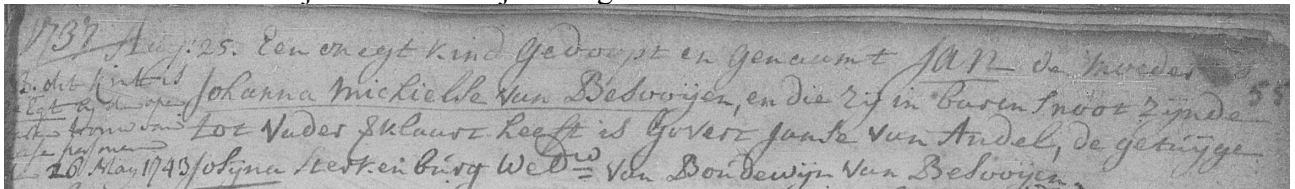 1737 Aug: 25. Een onegt kind gedoopt en genaamt JAN de moeder is
Johanna Michielse van Besooijen, en die zij in barensnoot zijnde 55
tot vader verklaart heeft is Govert Janse van Andel, de getuijge
Josijna Sterkenburg Wed:we van Boudewijn van Besooijen.
N.B. dit kint is
geEgt bij de ope
trouw van
persoonen
26 May 1743